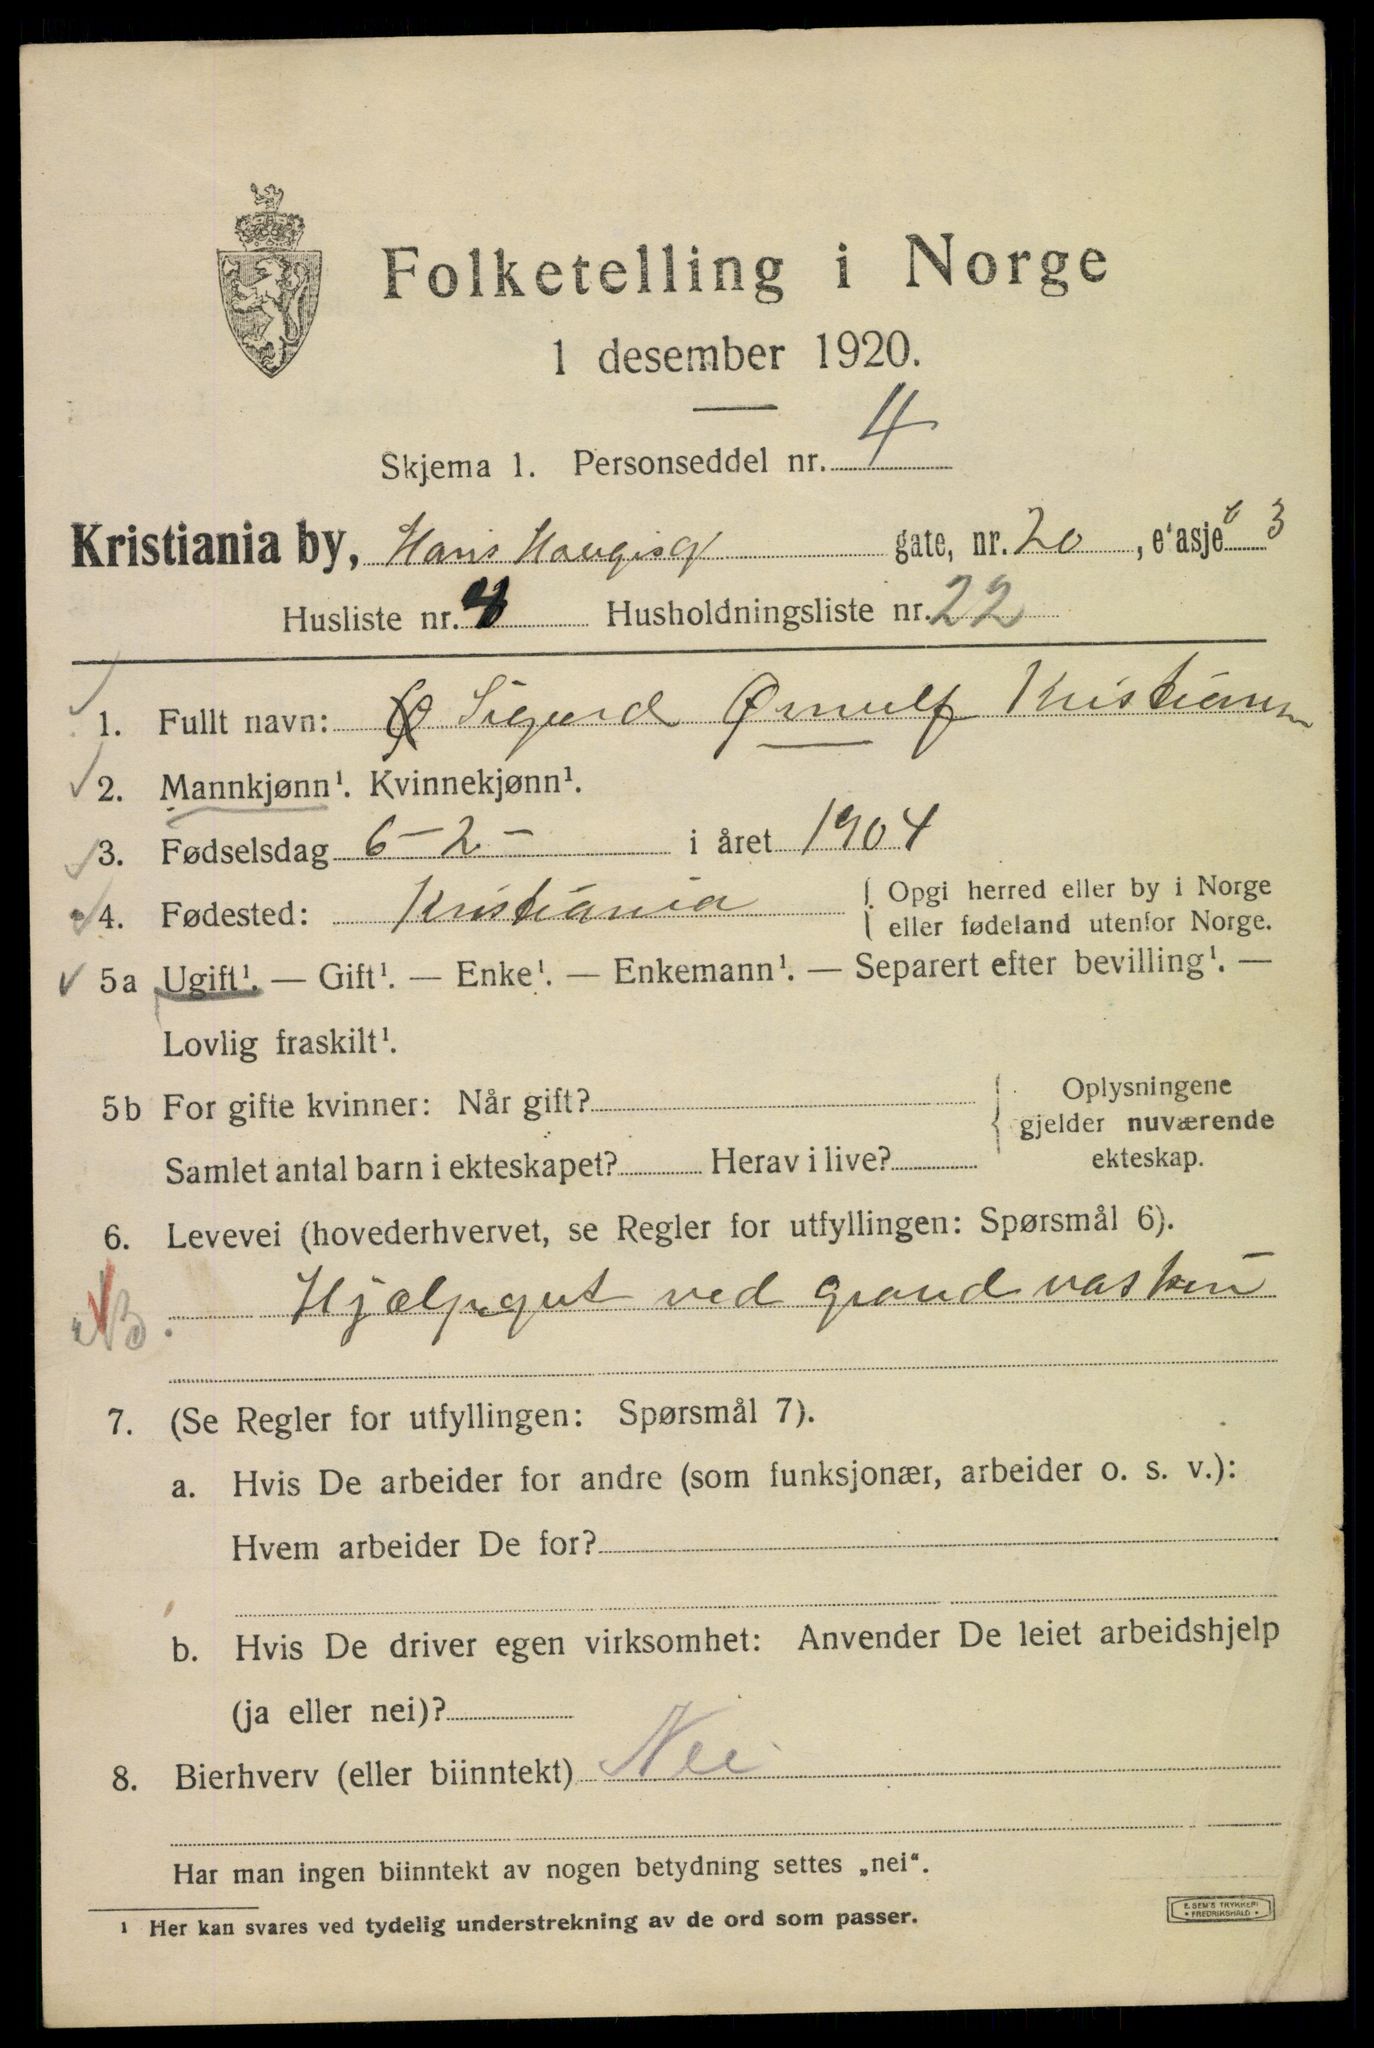 Folketelling i Norge
1 desember 1920.
Skjema 1. Personseddel nr. 4
Kristiania by, Hans Haugisg gate, nr. 20, etasje 3
Husliste nr. 4 Husholdningsliste nr. 22
1. Fullt navn: Sigurd Ørnulf Kristiansen
2. Mannkjønn¹. Kvinnekjønn¹.
3. Fødselsdag 6-2- i året 1904
4. Fødested: Kristiania { Opgi herred eller by i Norge
eller fødeland utenfor Norge.
5a Ugift¹. — Gift¹. — Enke¹. — Enkemann¹. — Separert efter bevilling¹. —
Lovlig fraskilt¹.
5b For gifte kvinner: Når gift? { Oplysningene
gjelder nuværende
Samlet antal barn i ekteskapet? Herav i live? ekteskap.
6. Levevei (hovederhvervet, se Regler for utfyllingen: Spørsmål 6).
NB. Hjælpegut ved grand vasken
7. (Se Regler for utfyllingen: Spørsmål 7).
a. Hvis De arbeider for andre (som funksjonær, arbeider o. s. v.):
Hvem arbeider De for?
b. Hvis De driver egen virksomhet: Anvender De leiet arbeidshjelp
(ja eller nei)?
8. Bierhverv (eller biinntekt) Nei
Har man ingen biinntekt av nogen betydning settes „nei“.
¹ Her kan svares ved tydelig understrekning av de ord som passer.
E. SEM'S TRYKKERI
• FREDRIKSHALD •